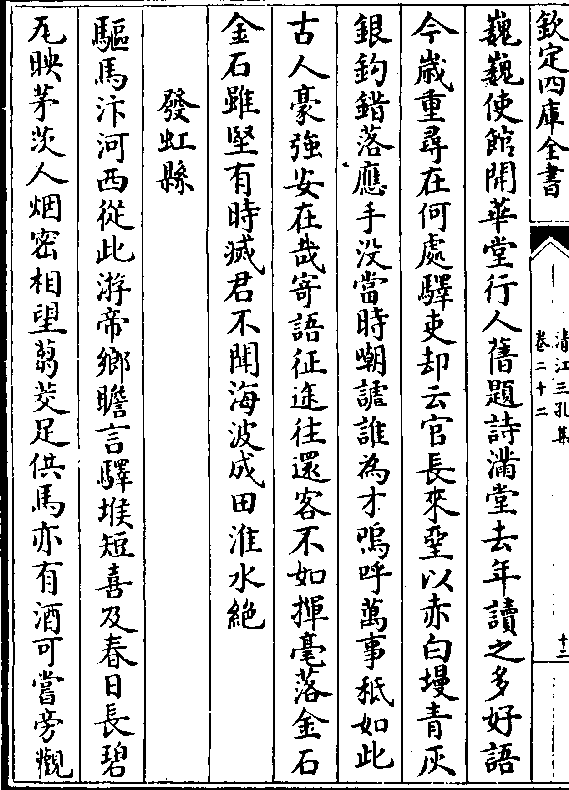 欽定四庫全書
清江三孔集
卷二十二
十三
巍巍使館開華堂行人舊題詩滿堂去年讀之多好語
今歲重尋在何處驛吏却云官長來堊以赤白墁青灰
銀鈎錯落應手没當時嘲謔誰為才嗚呼萬事秪如此
古人豪強安在哉寄語征途往還客不如揮毫落金石
金石雖堅有時滅君不聞海波成田淮水絶
發虹縣
驅馬汴河西從此游帝鄉瞻言驛堠短喜及春日長碧
瓦映茅茨人烟密相望芻茭足供馬亦有酒可嘗旁觀